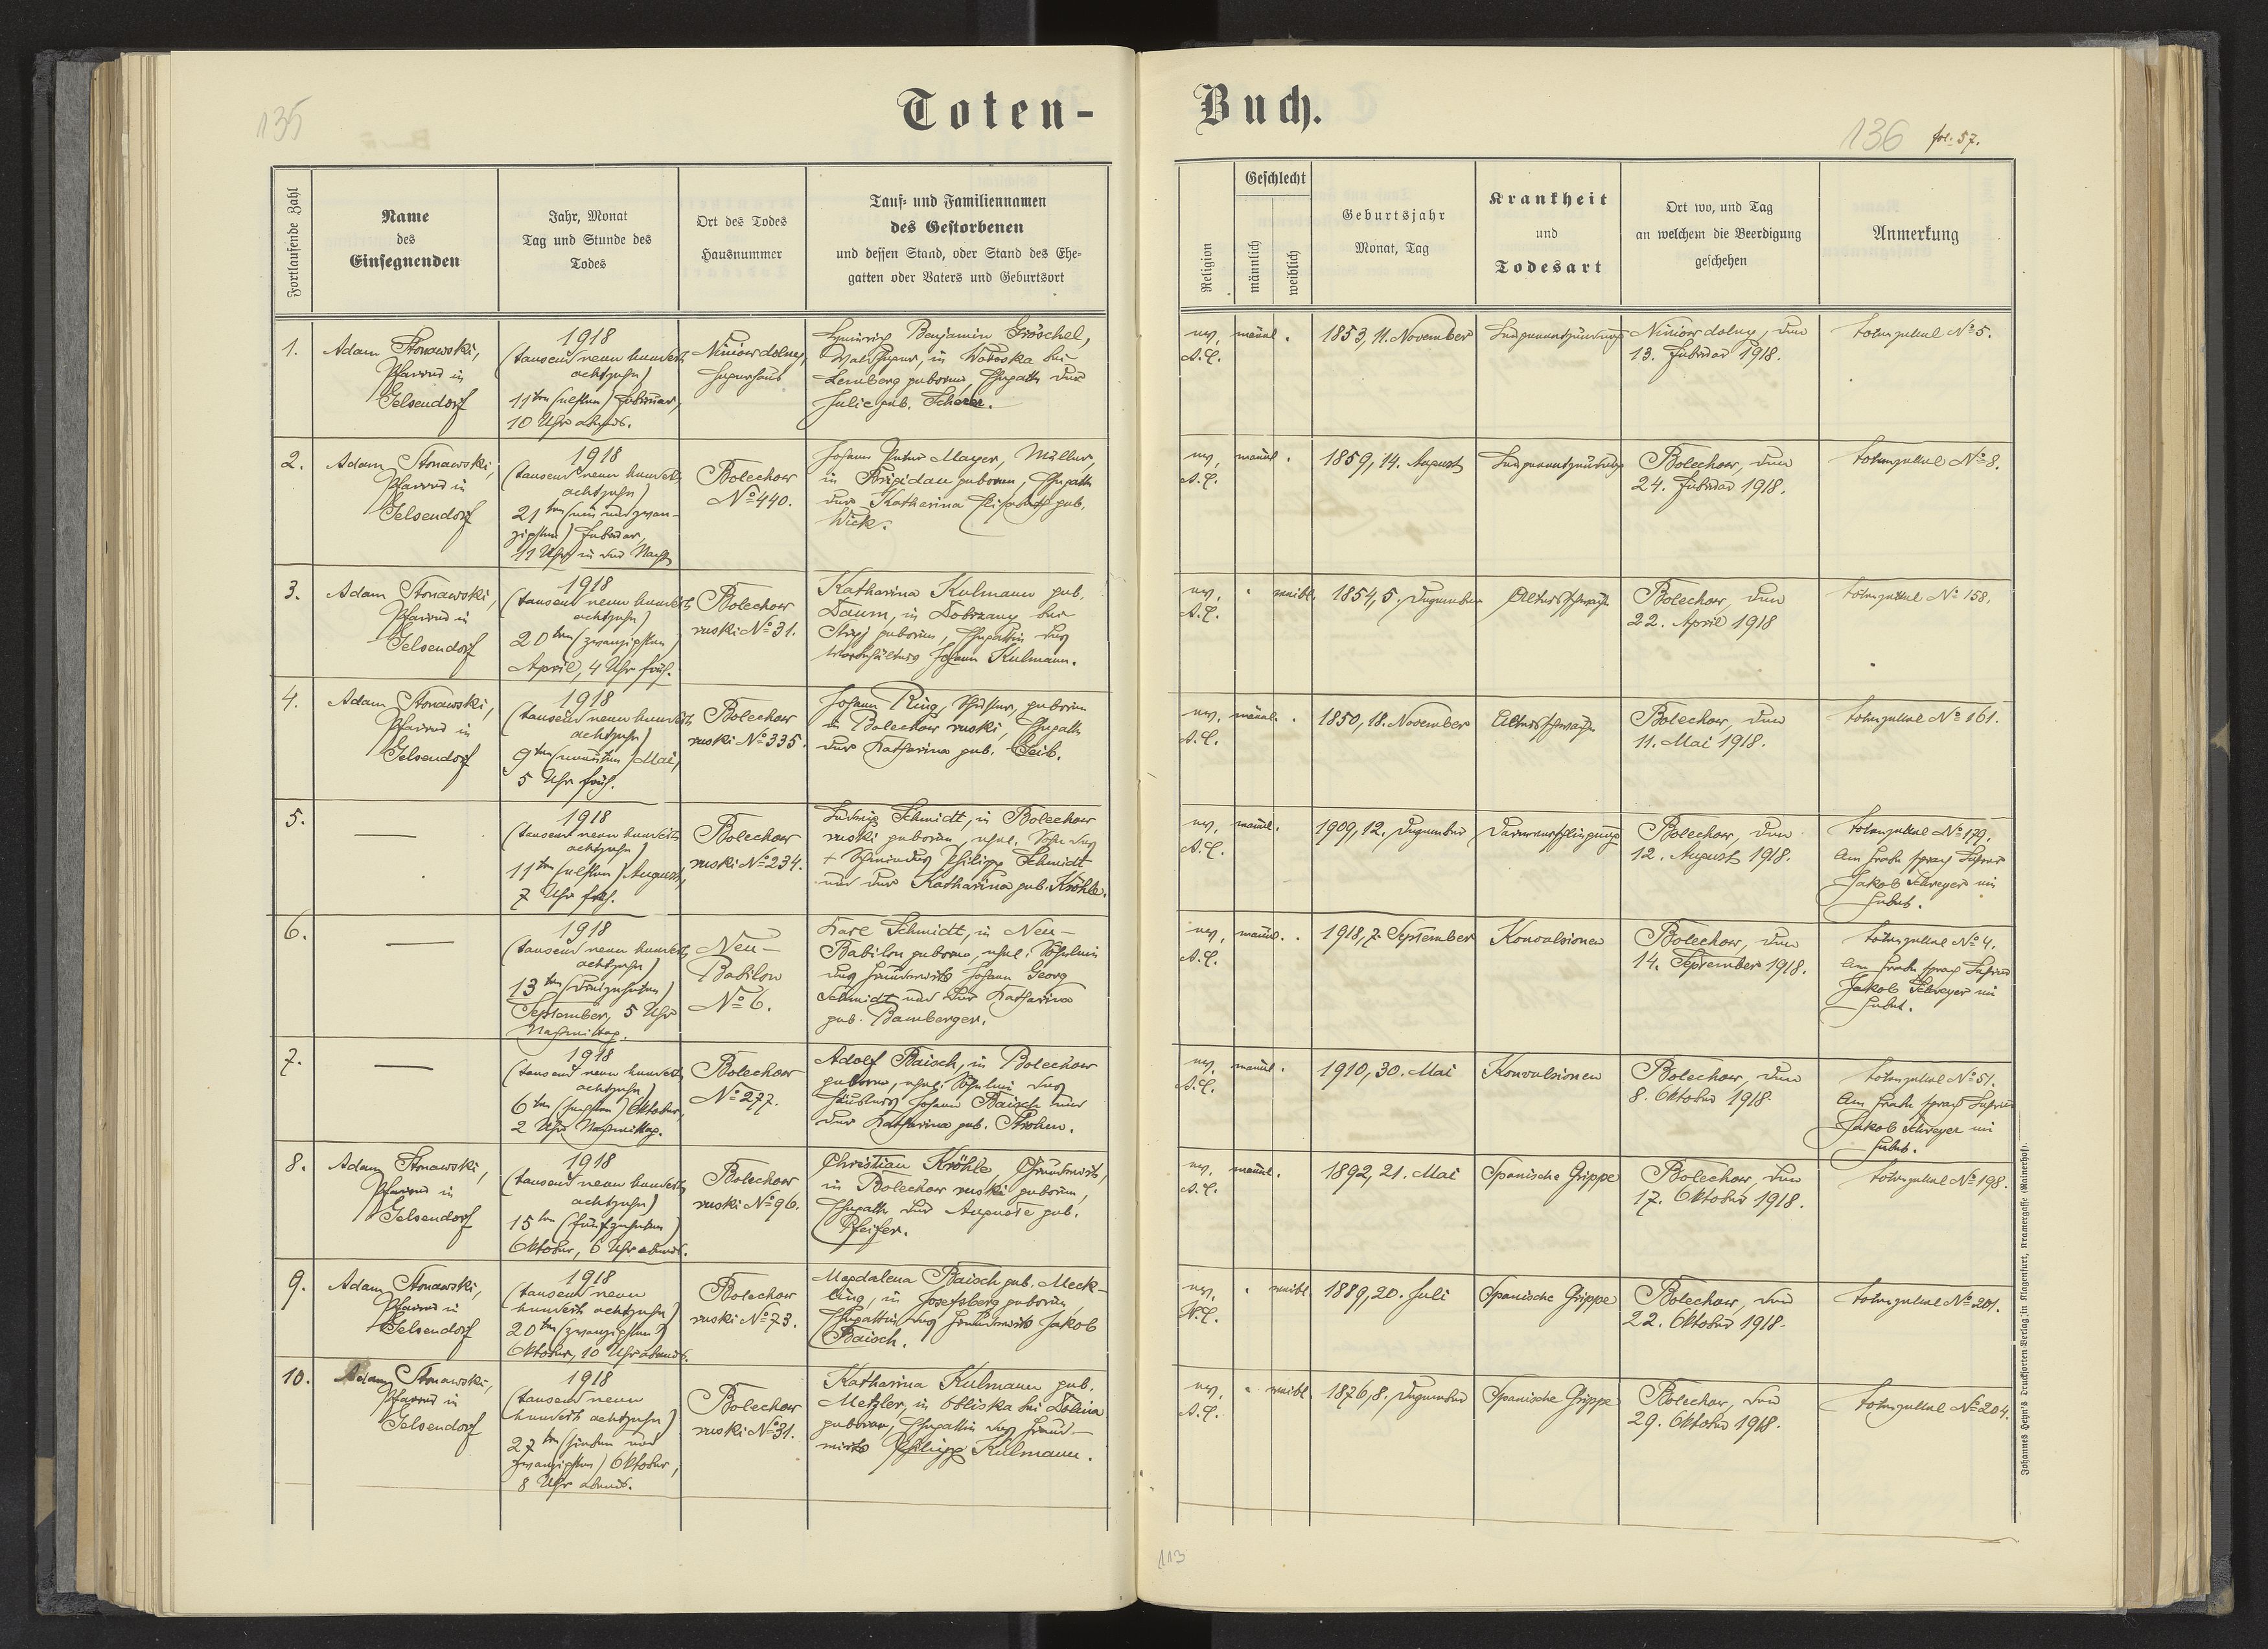 135
Toten-
Fortlaufende Zahl
Name
des
Einsegnenden
Jahr, Monat
Tag und Stunde des
Todes
Ort des Todes
Hausnummer
Tauf- und Familiennamen
des Gestorbenen
und dessen Stand, oder Stand des Ehe-
gatten oder Vaters und Geburtsort
1.
Adam Stonawski,
Pfarrer in
Gelsendorf
1918
(tausend neun hundert
achtzehn)
11ten (elften) Februar,
10 Uhr abends.
Niniow dolny,
Hegerhaus
Heinrich Benjamin Gröschel,
Waldheger, in Wołoska bei
Lemberg geboren, Ehegatte der
Julie geb. Scherer.
2.
Adam Stonawski,
Pfarrer in
Gelsendorf
1918
(tausend neun hundert
achtzehn)
21ten (ein und zwan-
zigsten) Februar,
11 Uhr in der Nacht
Bolechow
No 440.
Johann Peter Mayer, Müller,
in Brigidau geboren, Ehegatte
der Katharina Elisabeth geb.
Wick.
3.
Adam Stonawski,
Pfarrer in
Gelsendorf
1918
(tausend neun hundert
achtzehn)
20ten (zwanzigsten)
April, 4 Uhr früh.
Bolechow
ruski No 31.
Katharina Kulmann geb.
Daum, in Dobrzany bei
Stryj geboren, Ehegattin des
Johann Kulmann.
4.
Adam Stonawski,
Pfarrer in
Gelsendorf
1918
(tausend neun hundert
achtzehn)
9ten (neunten) Mai,
5 Uhr früh.
Bolechow
ruski No 335.
Johann Ring, Schuster, geboren
in Bolechow ruski, Ehegatte
der Katharina geb. Leib.
5.
—
1918
(tausend neun hundert
achtzehn)
11ten (elften) August,
7 Uhr früh.
Bolechow
ruski No 234.
Ludwig Schmidt, in Bolechow
ruski geboren, ehel. Sohn des
+ Schmiedes Philipp Schmidt
und der Katharina geb. Kröhle.
6.
—
1918
(tausend neun hundert
achtzehn)
13ten (dreizehnten)
September, 5 Uhr
Nachmittag.
Neu-
Babilon
No 6.
Karl Schmidt, in Neu-
Babilon geboren, ehel. Söhnlein
des Grundwirts Johann Georg
Schmidt und der Katharina
geb. Bamberger.
7.
—
1918
(tausend neun hundert
achtzehn)
6ten (sechsten) Oktober,
2 Uhr Nachmittag.
Bolechow
No 277.
Adolf Baisch, in Bolechow
geboren, ehel. Söhnlein des
Häuslers Johann Baisch und
der Katharina geb.
8.
Adam Stonawski,
Pfarrer in
Gelsendorf
1918
(tausend neun hundert
achtzehn)
15ten (fünfzehnten)
Oktober, 6 Uhr abends.
Bolechow
ruski No 96.
Christian Kröhle, Grundwirt,
in Bolechow ruski geboren,
Ehegatte der Auguste geb.
Pfeifer.
9.
Adam Stonawski,
Pfarrer in
Gelsendorf
1918
(tausend neun
hundert achtzehn)
20ten (zwanzigsten)
Oktober, 10 Uhr abends.
Bolechow
ruski No 73.
Magdalena Baisch geb. Meck-
ling, in Josefsberg geboren,
Ehegattin des Grundwirts Jakob
Baisch.
10.
Adam Stonawski,
Pfarrer in
Gelsendorf
1918
(tausend neun
hundert achtzehn)
27ten (sieben und
zwanzigsten) Oktober,
8 Uhr abends.
Bolechow
ruski No 31.
Katharina Kulmann geb.
Metzler, in Obliska bei Dolina
geboren, Ehegattin des Grund-
wirts Philipp Kulmann.
Buch.
136 fol. 57.
Religion
Geschlecht
männlich
weiblich
Geburtsjahr
Monat, Tag
Krankheit
und
Todesart
Ort wo, und Tag
an welchem die Beerdigung
geschehen
Anmerkung
ev. A.C.
männl.
1853, 11. November
Lungenentzündung
Niniow dolny, den
13. Februar 1918.
Totenzettel No 5.
ev. A.C.
männl.
1859, 14. August
Lungenentzündung
Bolechow, den
24. Februar 1918.
Totenzettel No 8.
ev. A.C.
"
weibl.
1854, 5. Dezember
Altersschwäche
Bolechow, den
22. April 1918
Totenzettel No 158.
ev. A.C.
männl.
1850, 18. November
Altersschwäche
Bolechow, den
11. Mai 1918.
Totenzettel No 161.
ev. A.C.
männl.
1909, 12. Dezember
Darmverschlingung
Bolechow, den
12. August 1918.
Totenzettel No 179.
Am Grabe sprach Lehrer
Jakob Schreyer ein
Gebet.
ev. A.C.
männl.
1918, 7. September
Konvulsionen
Bolechow, den
14. September 1918.
Totenzettel No 4.
Am Grabe sprach Lehrer
Jakob Schreyer ein
Gebet.
ev. A.C.
männl.
1910, 30. Mai
Konvulsionen
Bolechow, den
8. Oktober 1918.
Totenzettel No 51.
Am Grabe sprach Lehrer
Jakob Schreyer ein
Gebet.
ev. A.C.
männl.
1892, 21. Mai
Spanische Grippe
Bolechow, den
17. Oktober 1918.
Totenzettel No 198.
ev. A.C.
"
weibl.
1889, 20. Juli
Spanische Grippe
Bolechow, den
22. Oktober 1918.
Totenzettel No 201.
ev. A.C.
"
weibl.
1876, 8. Dezember
Spanische Grippe
Bolechow, den
29. Oktober 1918.
Totenzettel No 204.
Johannes Heyn's Drucksorten-Verlag, in Klagenfurt, Kramergasse (Rainerhof).
113